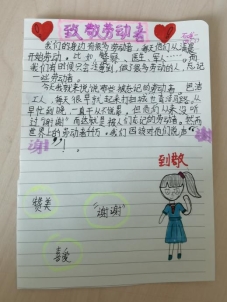 致敬劳动者
我们的身边有很多劳动者，每天他们从清晨
开始劳动。比如警察、医生、军人……而
我们有时候只会注意到，做了很多劳动的人，忘记
一些劳动者。
今天我就来说说那些被忘记的劳动者，
工人，每天很早就起来打扫
早忙到晚，一直干从不说累，但他们从来没
听过“谢谢”而这就是被人们忘记的劳动者。然而
世界上的劳动者
谢谢
到敬
赞美
“谢谢”
喜爱